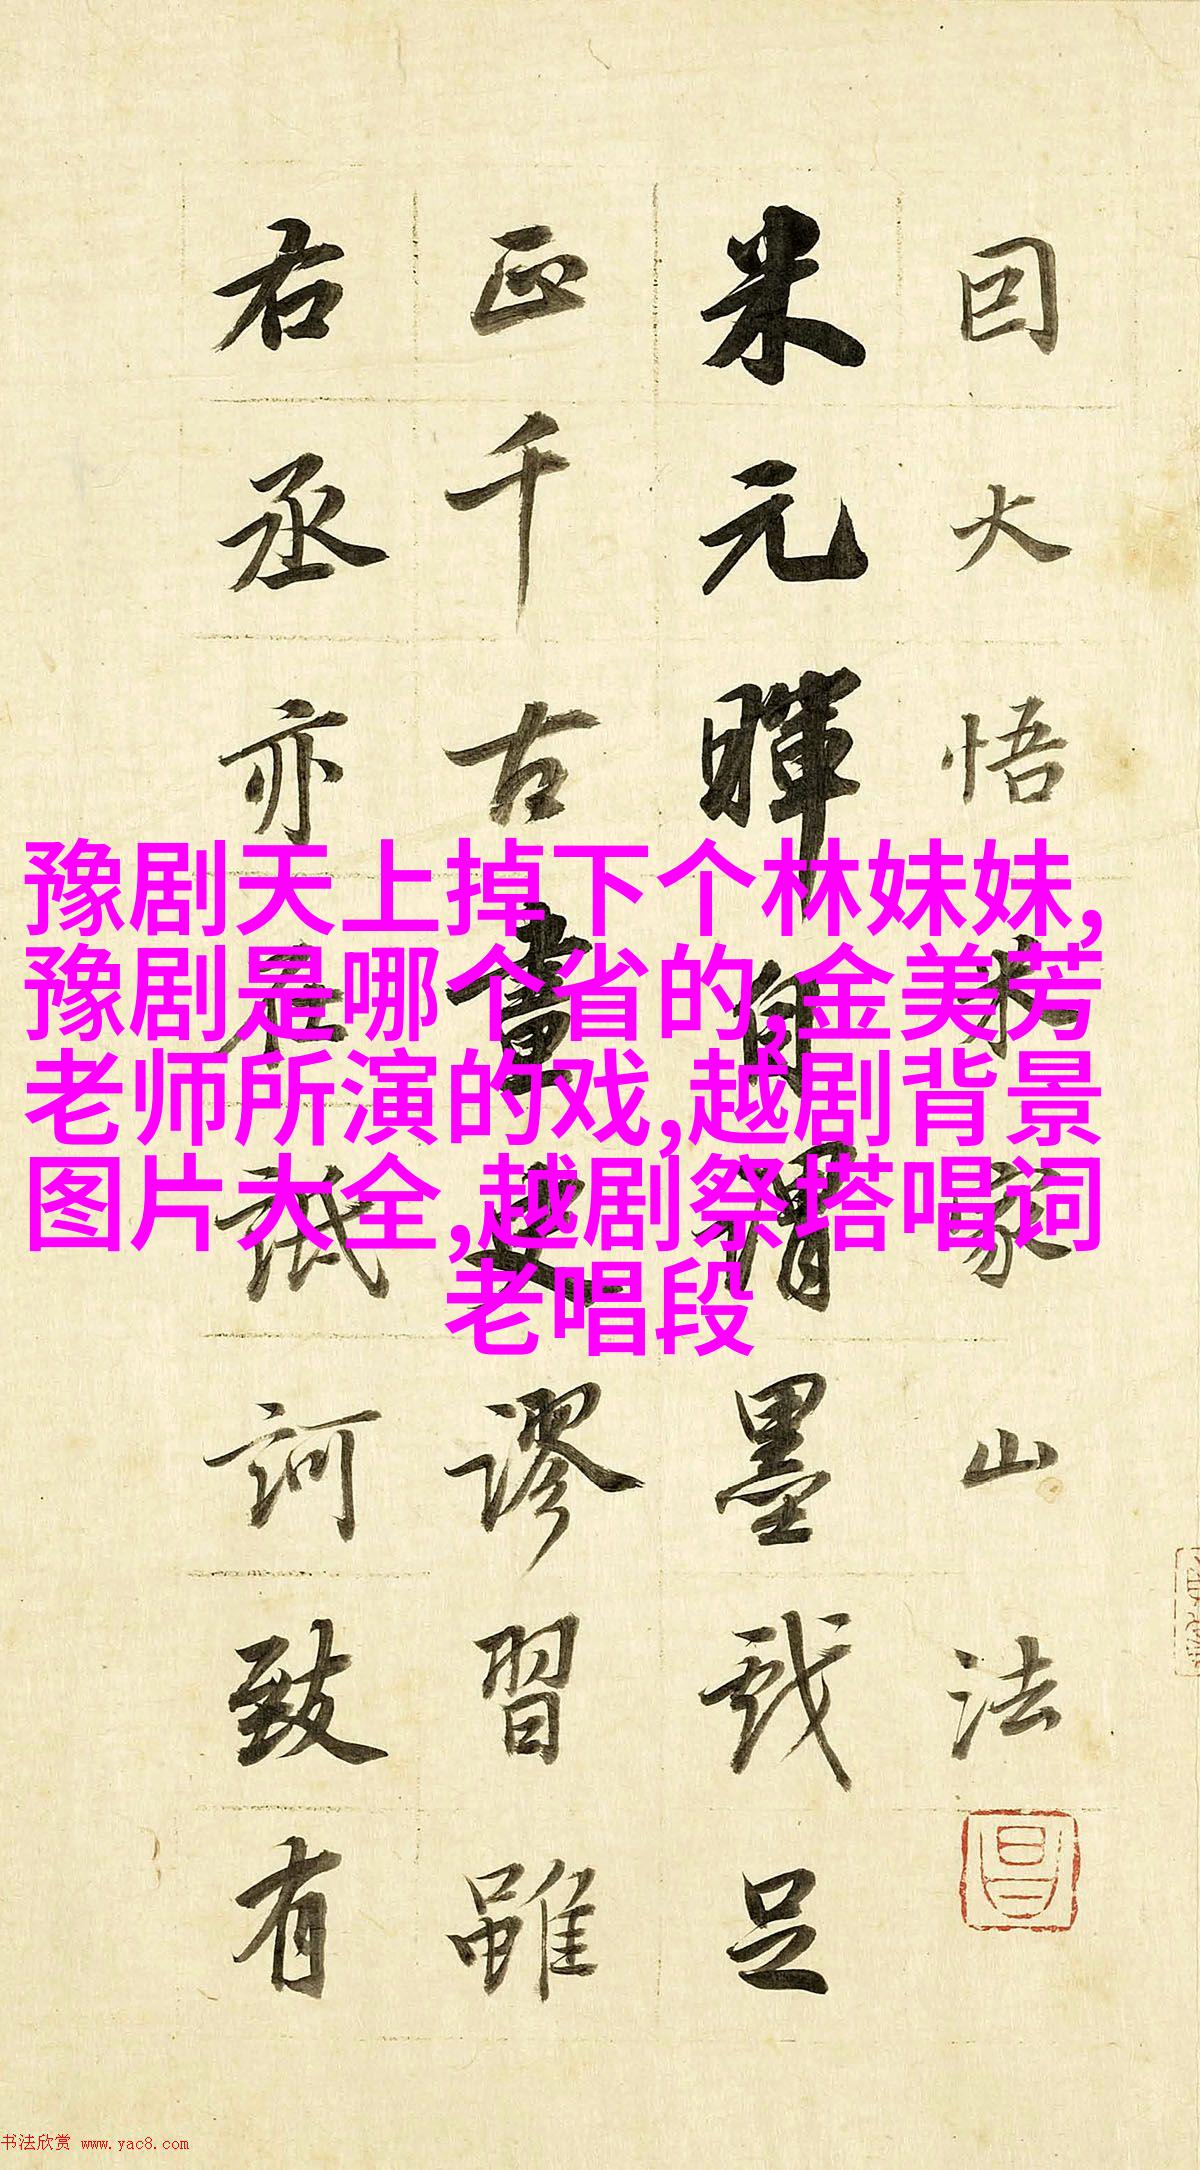 囙大悟米家山法
米元暉自謂墨戲足
正千古畫史謬習雖
右丞亦在詆訶致有
豫剧天上掉下个林妹妹,
豫剧是哪个省的,金美芳
老师所演的戏,越剧背景
图片大全,越剧祭塔唱词
老唱段
昌
书法欣赏 www.yac8.com